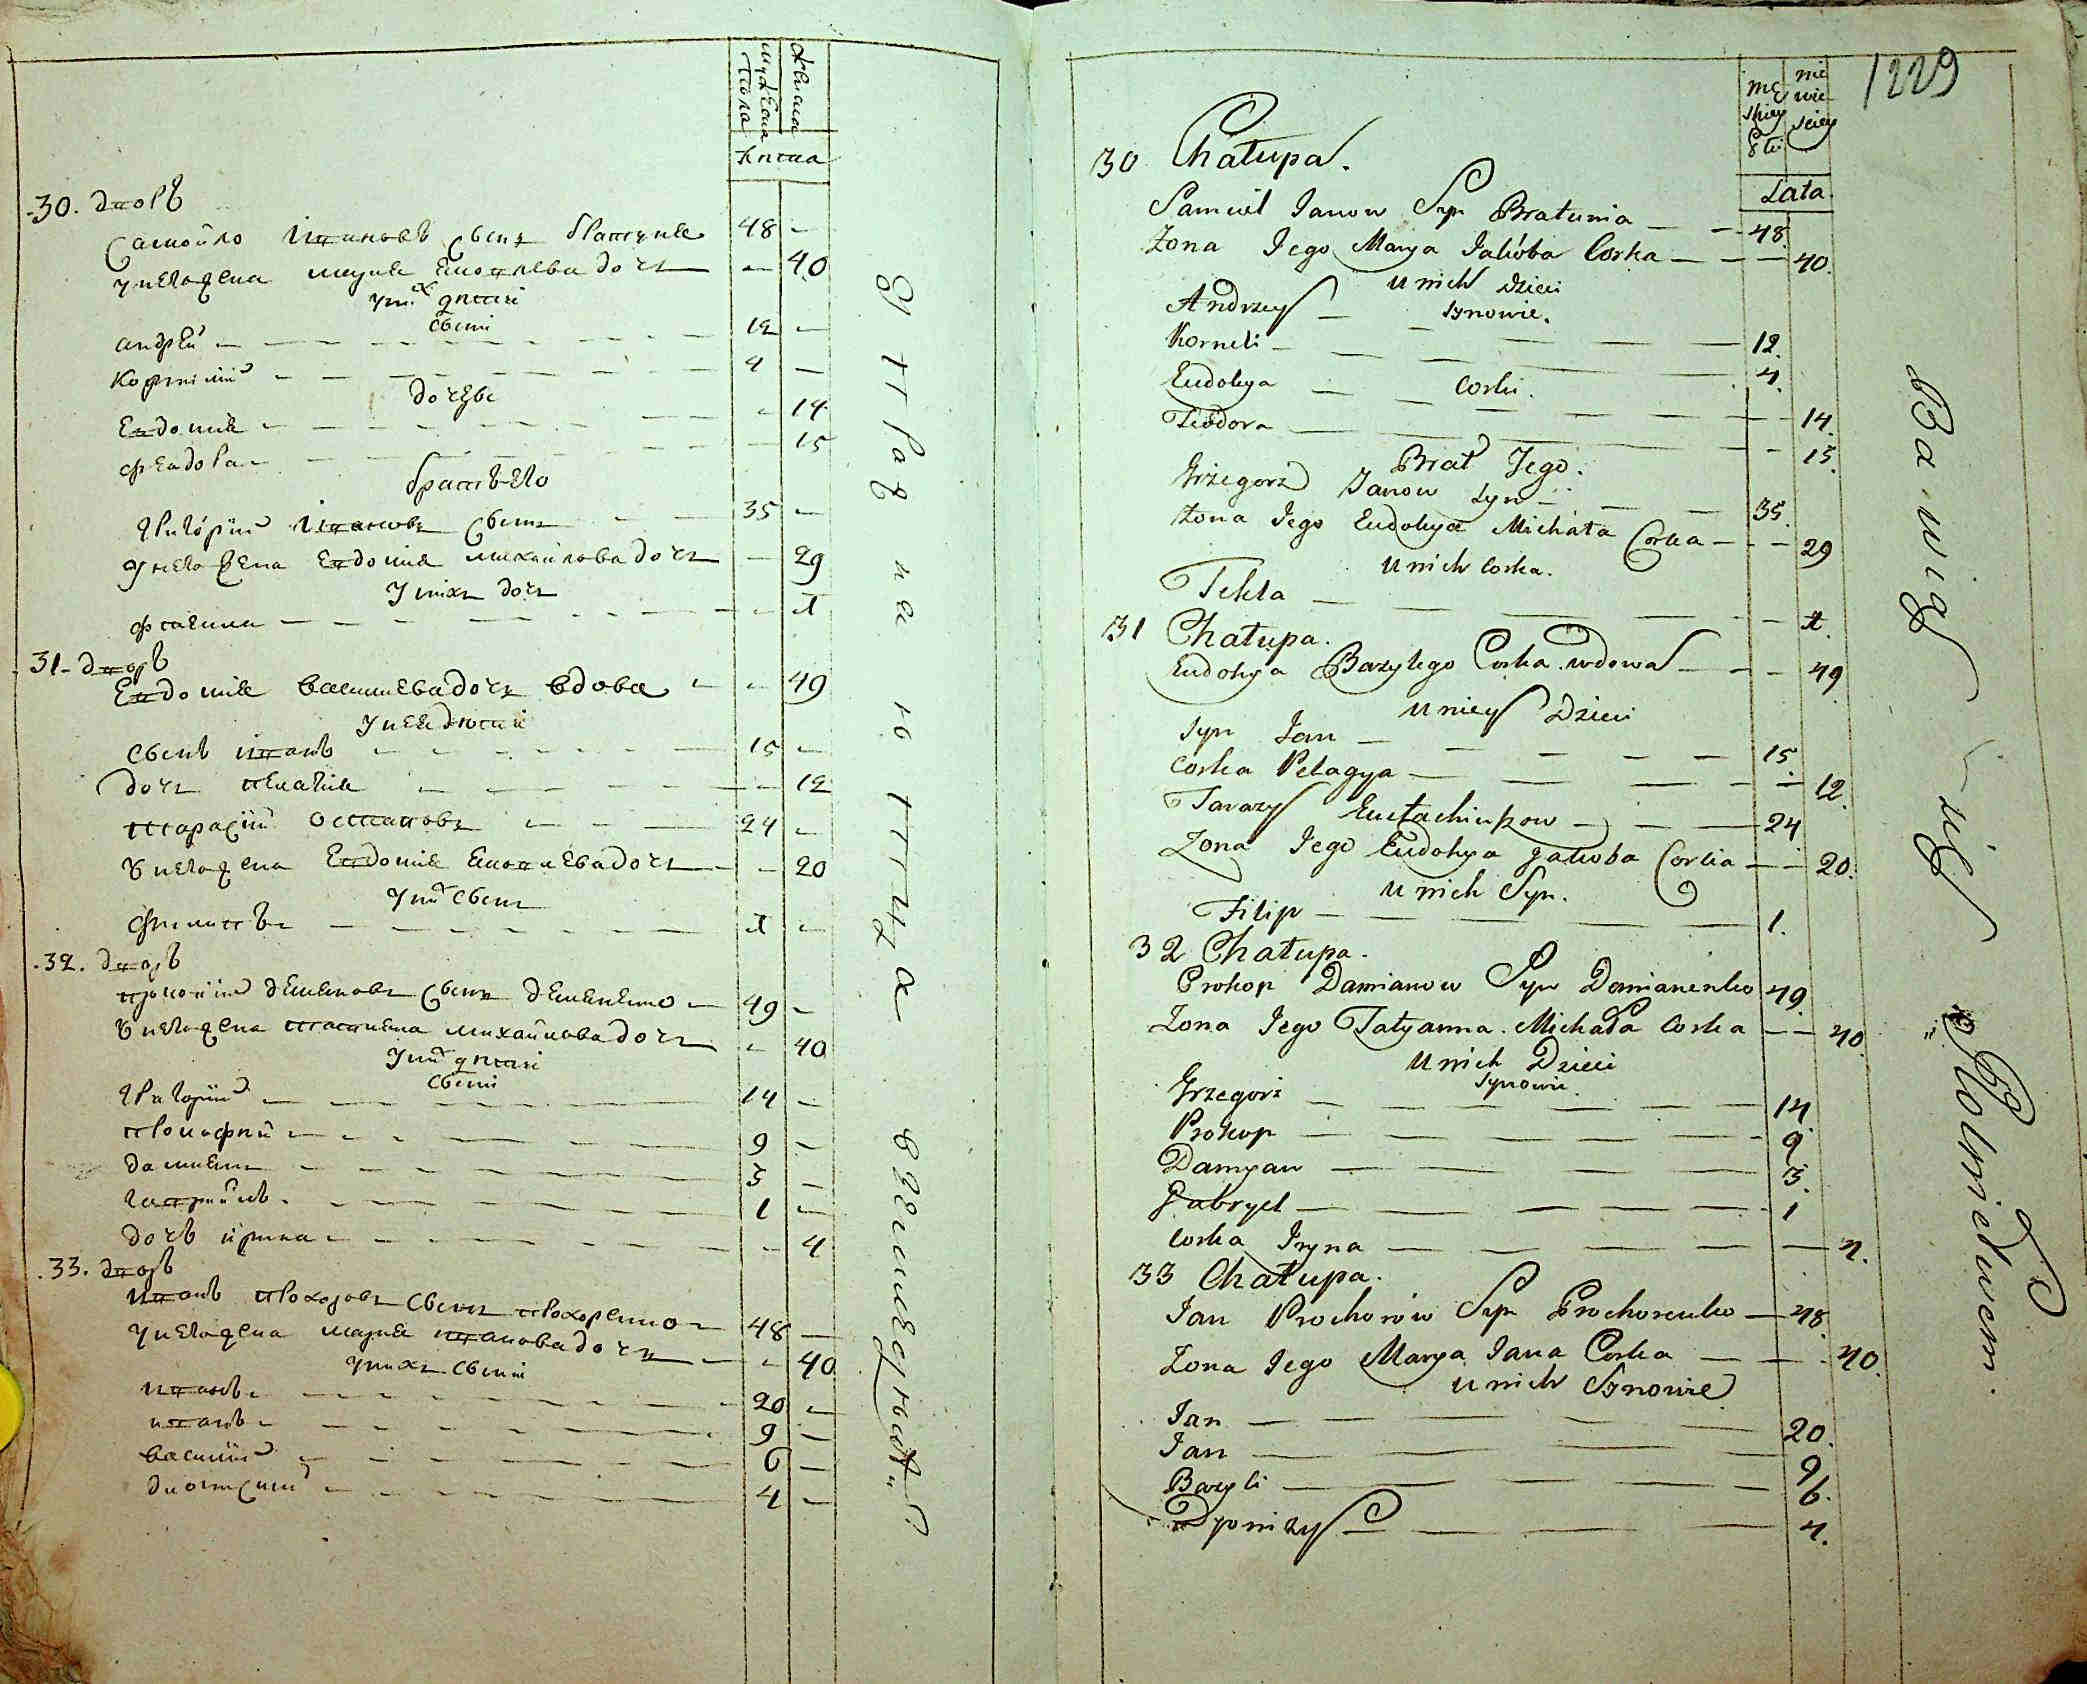 мужеска пола
женска
лѣта
30. дворъ
Самойло Ивановъ сынъ Братуня 48 –
У него жена Марія Яковлева дочь – 40
У них дѣти
сыни
Андрей – 12 –
Корнилій – 4 –
дочери
Евдокия – 14
Феадора – 15
братъ его
Григорій Ивановъ сынъ – 35 –
У него жена Евдокия Михайлова дочь – 29
У нихъ дочь
– 1
31 дворъ
Евдокия Василиева дочь вдова – 49
У нея дѣти
Сынъ Иванъ – 15 –
дочь Пелагия – 12
Тарасій Остаповъ – 24 –
У него жена Евдокия Яковлева дочь – 20
У них сынъ
Филиппъ – 1 –
32. дворъ
Прокопій Демяновъ сынъ Демяненко – 49 –
У него жена Татияна Михайлова дочь – 40
У них дѣти
сыни
Григорій – 14 –
Прокофий – 9 –
Дамиянъ – 3 –
Гавриилъ – 1 –
дочь Ирина – 4
33. дворъ
Иванъ Прохоровъ сынъ Прохоренко – 48 –
У него жена Мария Иванова дочь – 40
У нихъ сыни
Иванъ – 20 –
Иванъ – 9 –
Василий – 6 –
Дионисий – 4 –
1229
męskiey płci
niewiesciey
Lata
30 Chałupa.
Samuel Janow Syn Bratunia – 48.
Zona Jego Marya Jakóba Corka – 40.
U nich Dzieci
Synowie.
Andrzey – 12.
Korneli – 4.
Corki.
Eudokya – 14.
Teodora – 15.
Brat Jego.
Grzegorz Janow Syn – 35.
Zona Jego Eudokya Michała Corka – 29
U nich Corka.
Tekla – 1.
31 Chałupa.
Eudokya Bazylego Corka wdowa – 49
U niey Dzieci
Syn Jan – 15
Corka Pelagya – 12.
Tarazy Eustachiuszow – 24
Zona Jego Eudokya Jakoba Corka – 20.
U nich Syn.
Filip – 1.
32 Chałupa.
Prokop Damianow Syn Damianenko 49.
Zona Jego Tatyanna Michała Corka – 40.
U nich Dzieci
Synowie
Grzegorz – 14
Prokop – 9
Damyan – 3.
Gabryel – 1
Corka Iryna – 4.
33 Chałupa.
Jan Prochorów Syn Prochorenko – 48.
Zona Jego Marya Jana Corka – 40.
U nich Synowie
Jan – 20.
Jan – 9
Bazyli – 6.
Dyonizy – 4.